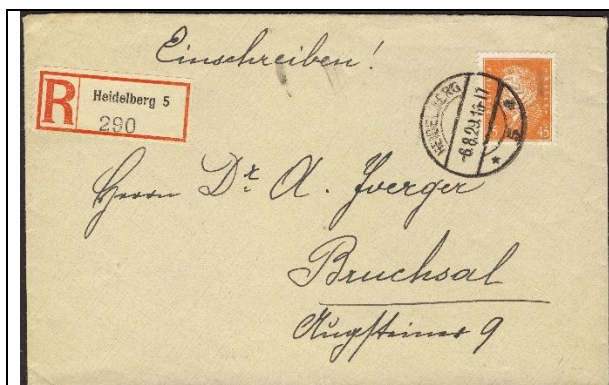 Einschreiben!
R
Heidelberg 5
290
HEIDELBERG
-6.8.29.16-17
* 5 a
45
Herrn Dr. A. Joerger
Bruchsal
Augsteiner 9